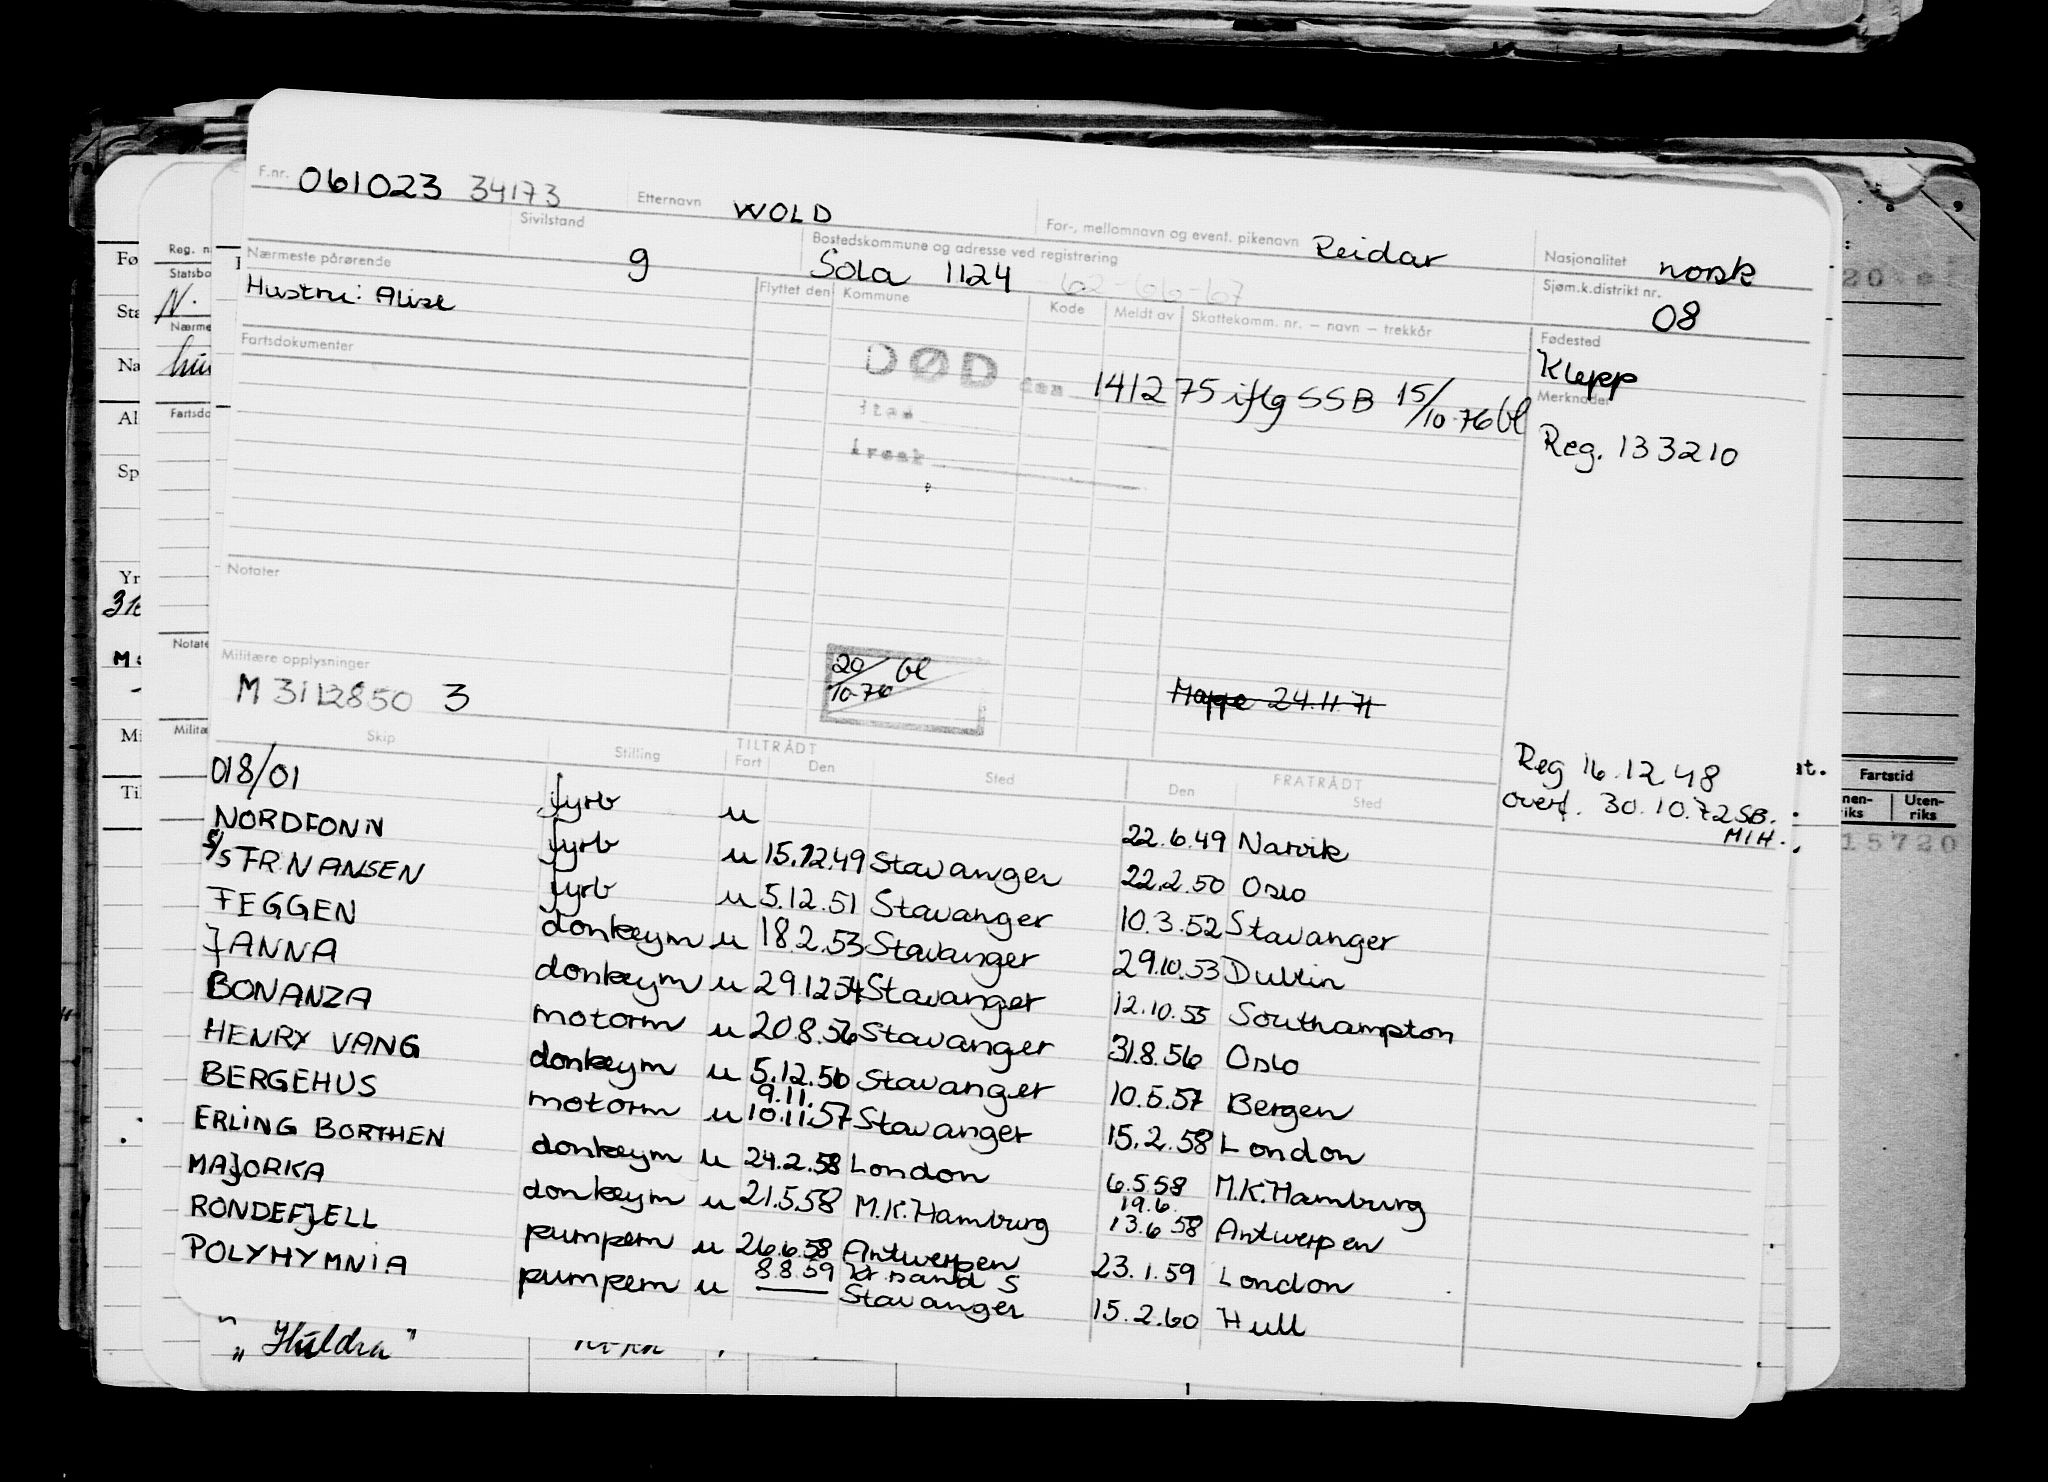 F.nr. 061023 34173 Etternavn WOLD For-, mellomnavn og event. pikenavn Reidar Nasjonalitet norsk
Sivilstand g Bostedskommune og adresse ved registrering Sola 1124 62-66-67 Sjøm.k.distrikt nr. 08
Nærmeste pårørende
Hustru: Alise
Flyttet den Kommune Kode Meldt av Skattekomm. nr. – navn – trekkår
Fødested
Klepp
Fartsdokumenter
DØD den 141275 iflg SSB 15/10-76 bl
Sted
Årsak
Merknader
Reg. 133210
Notater
Militære opplysninger
M 3112850 3
20/10-76 bl
Mappe 24.11.71
Reg 16.12.48
overf. 30.10.72 SB.
MIH.
Skip Stilling TILTRÅDT FRATRÅDT
Fart Den Sted Den Sted
018/01
NORDFONN fyrb u 22.6.49 Narvik
S/S FR. NANSEN fyrb u 15.12.49 Stavanger 22.2.50 Oslo
FEGGEN fyrb u 5.12.51 Stavanger 10.3.52 Stavanger
JANNA donkeym u 18.2.53 Stavanger 29.10.53 Dublin
BONANZA donkeym u 29.12.54 Stavanger 12.10.55 Southampton
HENRY VANG motorm u 20.8.56 Stavanger 31.8.56 Oslo
BERGEHUS donkeym u 5.12.56 Stavanger 10.5.57 Bergen
9.11.
ERLING BORTHEN motorm u 10.11.57 Stavanger 15.2.58 London
MAJORKA donkeym u 24.2.58 London 6.5.58 M.K. Hamburg
19.6.
RONDEFJELL donkeym u 21.5.58 M.K. Hamburg 13.6.58 Antwerpen
POLYHYMNIA pumpem u 26.6.58 Antwerpen 23.1.59 London
8.8.59 Kr.sand S
pumpem u — Stavanger 15.2.60 Hull
" "Huldra"
Fø
Sta
Na
Al
Sp
Yr
Mi
Til
Reg. n
Statsbo
N.
Nærme
hu
Fartsdo
Notate
Militæ
Fartstid
Uten-
riks
15720